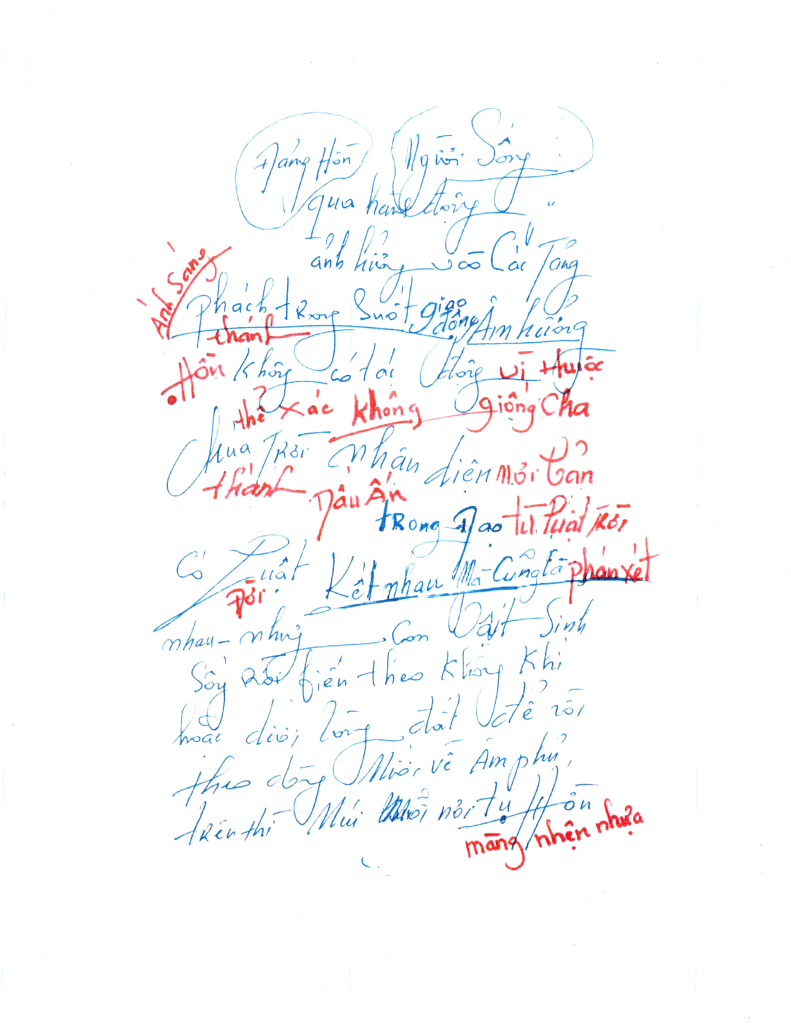 Đảng Hồn Người Sống
qua hành động
ảnh hưởng vào Các Tảng
Ánh Sáng
phách trong Suốt giao động Âm hưởng
thánh
Hồn Không có tác động vì thuộc
thể xác không giống Cha
Chúa Trời nhân diện mỗi bản
thánh Dấu Ấn
trong Đạo từ Luật Trời
Có Luật Kết nhau Mà Cũng là phán xét
Đời
nhau - những con Vật Sinh
Sống rồi biến theo Không Khí
hoặc dưới lòng đất để rồi
theo dòng Mưới về Âm phủ,
trên thì Mùi nơi tụ Hồn
màng nhện nhựa